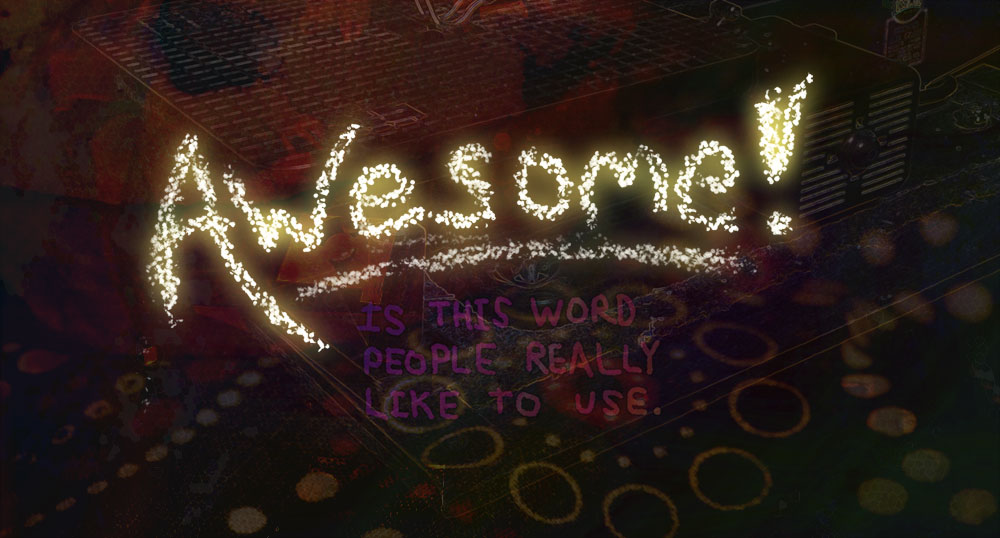 Awesome!
IS THIS WORD
PEOPLE REALLY
LIKE TO USE.